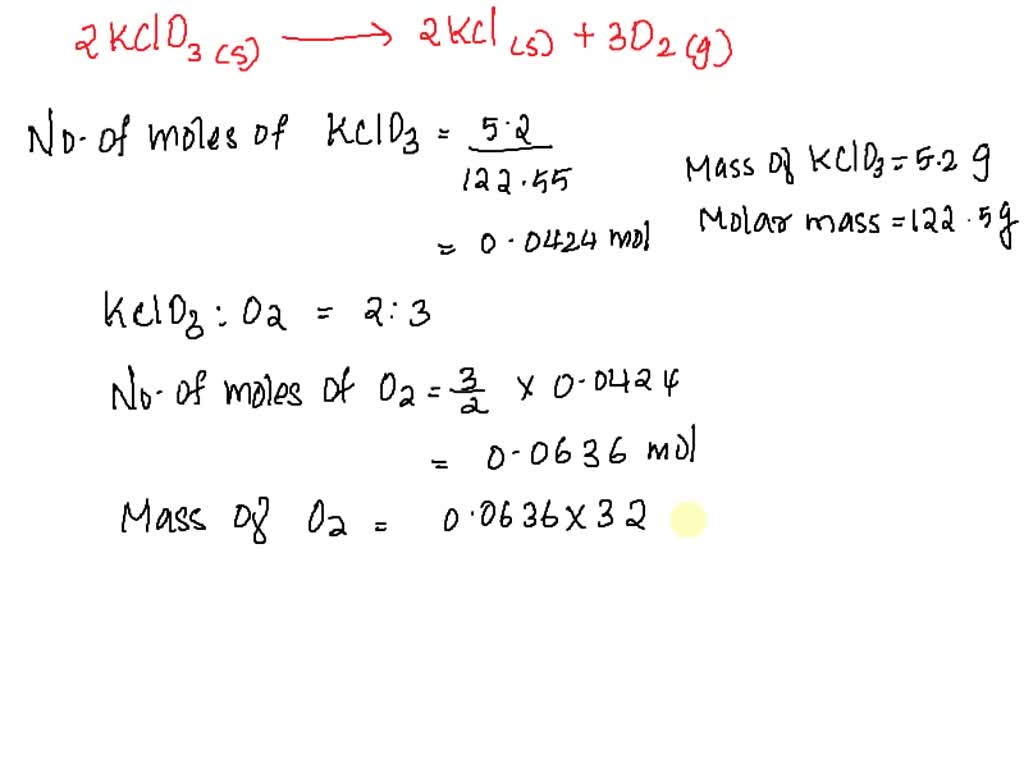 2KClO3(s) → 2KCl(s) + 3O2(g)
No. of moles of KClO3 = 5.2 / 122.55
Mass of KClO3 = 5.2 g
Molar mass = 122.5g
= 0.0424 mol
KClO3 : O2 = 2:3
No. of moles of O2 = 3/2 × 0.0424
= 0.0636 mol
Mass of O2 = 0.0636 × 32